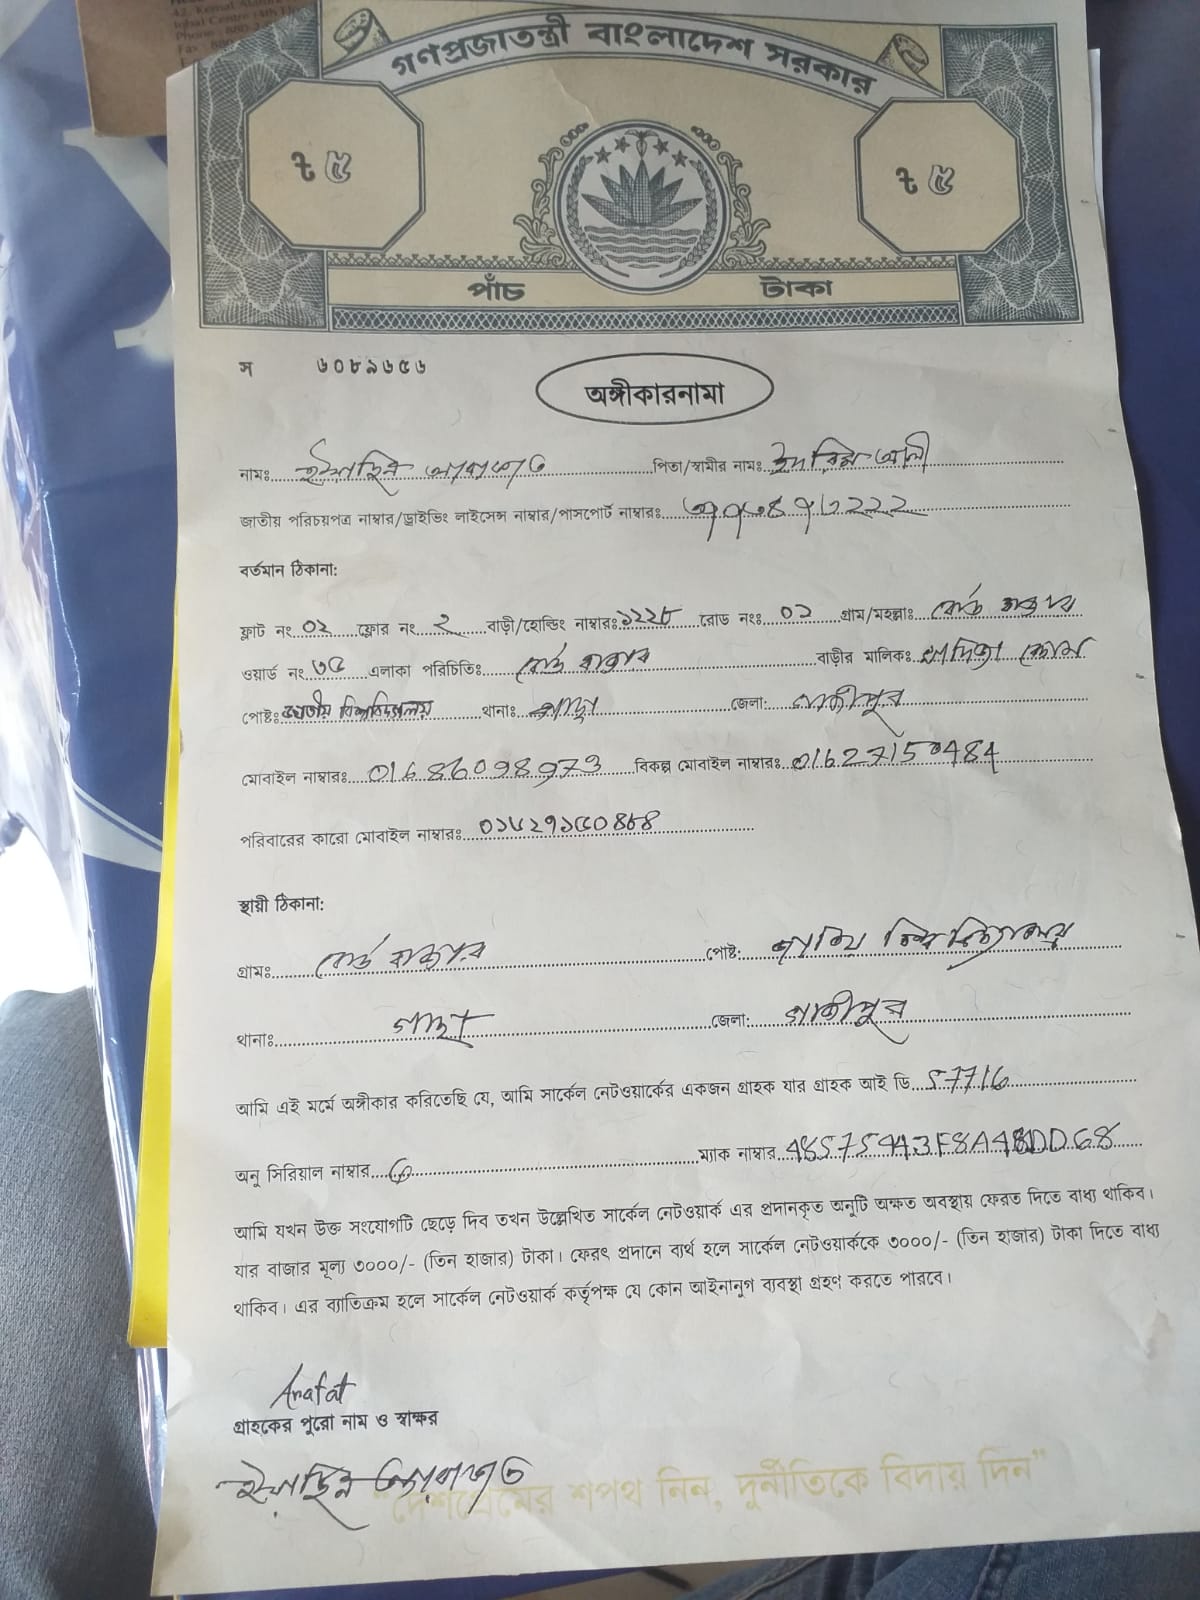 গণপ্রজাতন্ত্রী বাংলাদেশ সরকার
৳ ৫ ৳ ৫
পাঁচ টাকা
স ৬০৮৯৬৫৬
অঙ্গীকারনামা
নামঃ ইয়াছিন আরাফাত পিতা/স্বামীর নামঃ ইদ্রিস আলী
জাতীয় পরিচয়পত্র নাম্বার/ড্রাইভিং লাইসেন্স নাম্বার/পাসপোর্ট নাম্বারঃ
বর্তমান ঠিকানা:
ফ্লাট নং ০২ ফ্লোর নং ২ বাড়ী/হোল্ডিং নাম্বারঃ ১২২৮ রোড নংঃ ০১ গ্রাম/মহল্লাঃ বোর্ড বাজার
ওয়ার্ড নং ৩৫ এলাকা পরিচিতিঃ বোর্ড বাজার বাড়ীর মালিকঃ
পোষ্টঃ জাতীয় বিশ্ববিদ্যালয় থানাঃ গাছা জেলা: গাজীপুর
মোবাইল নাম্বারঃ 01686098973 বিকল্প মোবাইল নাম্বারঃ 01627150484
পরিবারের কারো মোবাইল নাম্বারঃ
স্থায়ী ঠিকানা:
গ্রামঃ বোর্ড বাজার পোষ্ট: জাতীয় বিশ্ববিদ্যালয়
থানাঃ গাছা জেলা: গাজীপুর
আমি এই মর্মে অঙ্গীকার করিতেছি যে, আমি সার্কেল নেটওয়ার্কের একজন গ্রাহক যার গ্রাহক আই ডি 57716
অনু সিরিয়াল নাম্বার ম্যাক নাম্বার
আমি যখন উক্ত সংযোগটি ছেড়ে দিব তখন উল্লেখিত সার্কেল নেটওয়ার্ক এর প্রদানকৃত অনুটি অক্ষত অবস্থায় ফেরত দিতে বাধ্য থাকিব।
যার বাজার মূল্য ৩০০০/- (তিন হাজার) টাকা। ফেরৎ প্রদানে ব্যর্থ হলে সার্কেল নেটওয়ার্ককে ৩০০০/- (তিন হাজার) টাকা দিতে বাধ্য
থাকিব। এর ব্যাতিক্রম হলে সার্কেল নেটওয়ার্ক কর্তৃপক্ষ যে কোন আইনানুগ ব্যবস্থা গ্রহণ করতে পারবে।
Arafat
গ্রাহকের পুরো নাম ও স্বাক্ষর
ইয়াছিন আরাফাত
"দেশপ্রেমের শপথ নিন, দুর্নীতিকে বিদায় দিন"